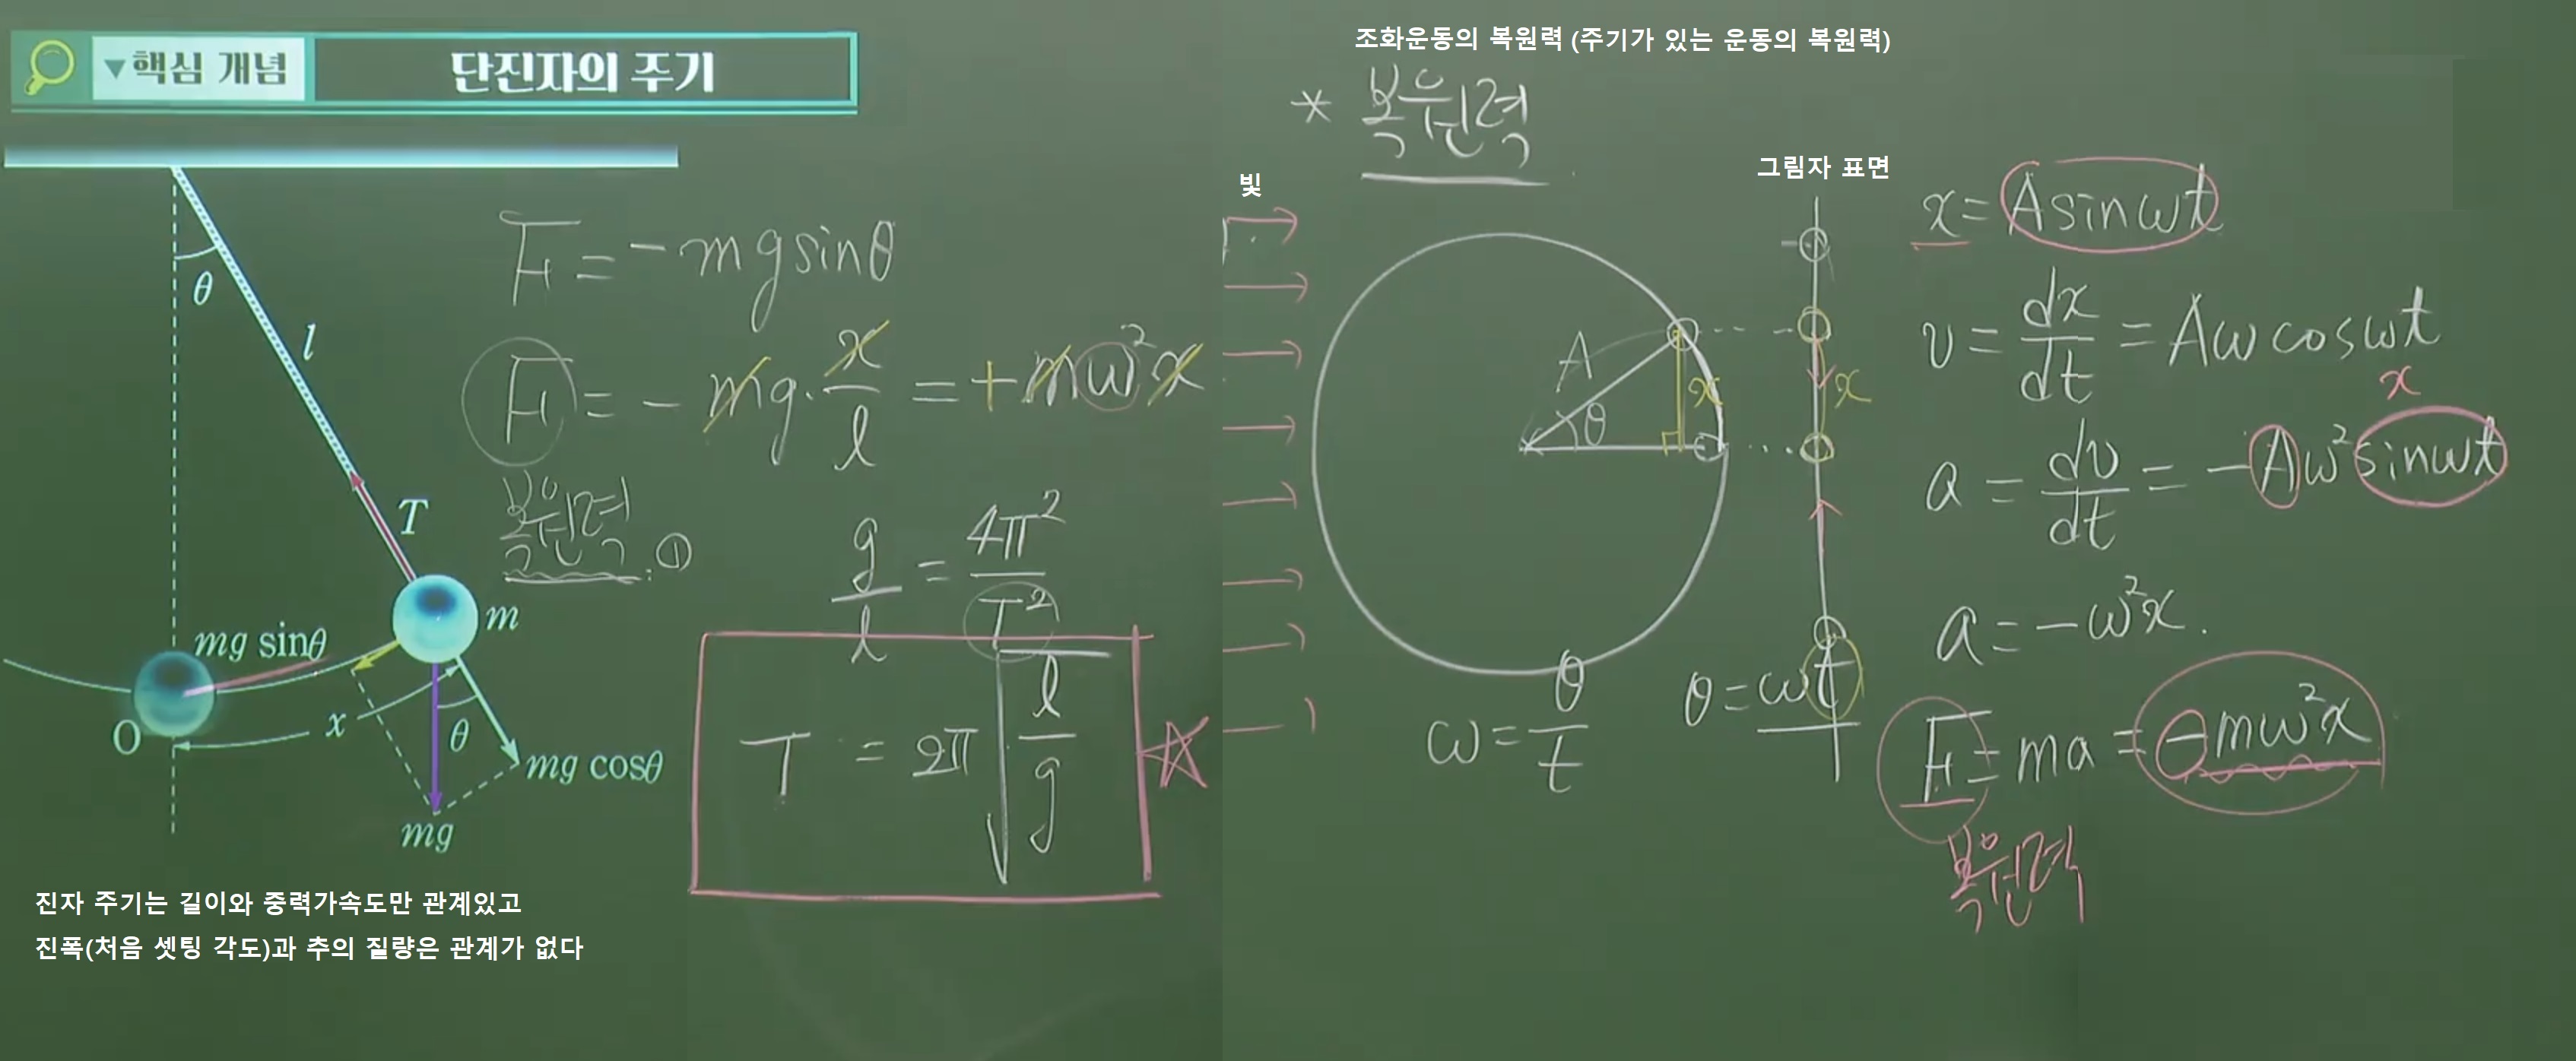 ▼핵심 개념 단진자의 주기
θ
l
T
m
mg sinθ
O
x
θ
mg cosθ
mg
F = -mg sinθ
F = - mg · x/l = + mω²x
복원력 : ①
g/l = 4π²/T²
T = 2π√(l/g)
진자 주기는 길이와 중력가속도만 관계있고
진폭(처음 셋팅 각도)과 추의 질량은 관계가 없다
조화운동의 복원력 (주기가 있는 운동의 복원력)
* 복원력
빛
그림자 표면
A
θ
x
x
ω = θ/t
θ = ωt
x = A sin ωt
v = dx/dt = Aω cos ωt
x
a = dv/dt = -Aω² sin ωt
a = -ω²x.
F = ma = -mω²x
복원력